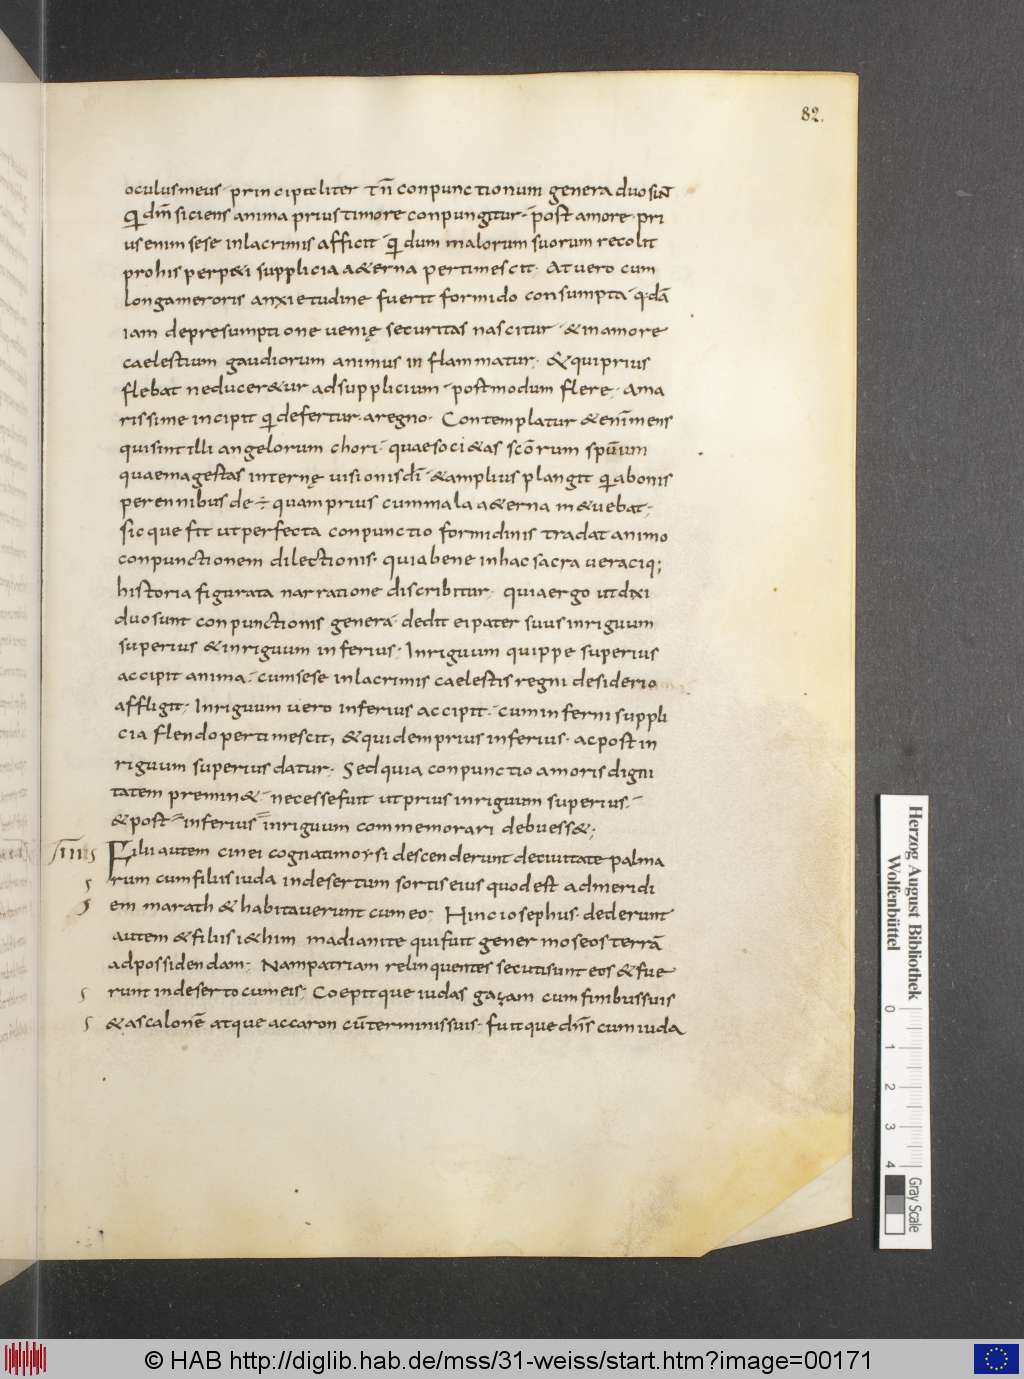 82.
oculusmeus· principaliter tn̄ conpunctionum genera duo sun̄
Q dm̄ siciens anima prius timore conpungitur· post amore· pri
us enim sese inlacrimis afficit q dum malorum suorum recolit
prohis perp&i supplicia a&erna pertimescit· At vero cum
longa meroris anxietudine fuerit formido consumpta q·dā
iam depresumptione venię securitas nascitur· & inamore
caelestium gaudiorum animus in flammatur· & qui prius
flebat neducer&ur adsupplicium· postmodum flere· Ama
rissime incipit q defertur· aregno· Contemplatur & enīmens
quisint illi angelorum chori· quaesoci&as scōrum spūum
quaemagestas internę visionis dī· & amplius plangit q abonis
perennibus de ÷ quam prius cum mala a&erna m&uebat·
sicque fit utperfecta conpunctio formidinis tradat animo
conpunctionem dilectionis· quia bene inhac sacra veraciq;
historia figurata narratione discribitur· quia ergo ut dixi
duo sunt conpunctionis genera· dedit ei pater suus inriguum
superius & inriguum inferius· Inriguum quippe superius
accipit anima· cum sese inlacrimis caelestis regni desiderio
affligit· Inriguum vero inferius accipit· cum inferni suppli
cia flendo pertimescit, & quidem prius inferius· ac post in
riguum superius datur· Sed quia conpunctio amoris digni
tatem premin&· necesse fuit ut prius inriguum superius·
& post inferius inriguum commemorari debuess&;
IIII Filii autem cinei cognati moysi descenderunt deciuitate palma
rum cum filiis iuda indesertum sortis eius quod est admeridi
em marath & habitaverunt cum eo; Hinc iosephus· dederunt
autem & filiis i&him madianite qui fuit gener moseos terrā
adpossidendam; Nam patriam relinquentes secuti sunt eos & fue
runt indeserto cum eis; Coepitque iudas gaçam cum finibus suis
& ascalonē atque accaron cū terminis suis· fuitque dn̄s cum iuda
Herzog August Bibliothek
Wolfenbüttel
0 1 2 3 4
Gray Scale
© HAB http://diglib.hab.de/mss/31-weiss/start.htm?image=00171